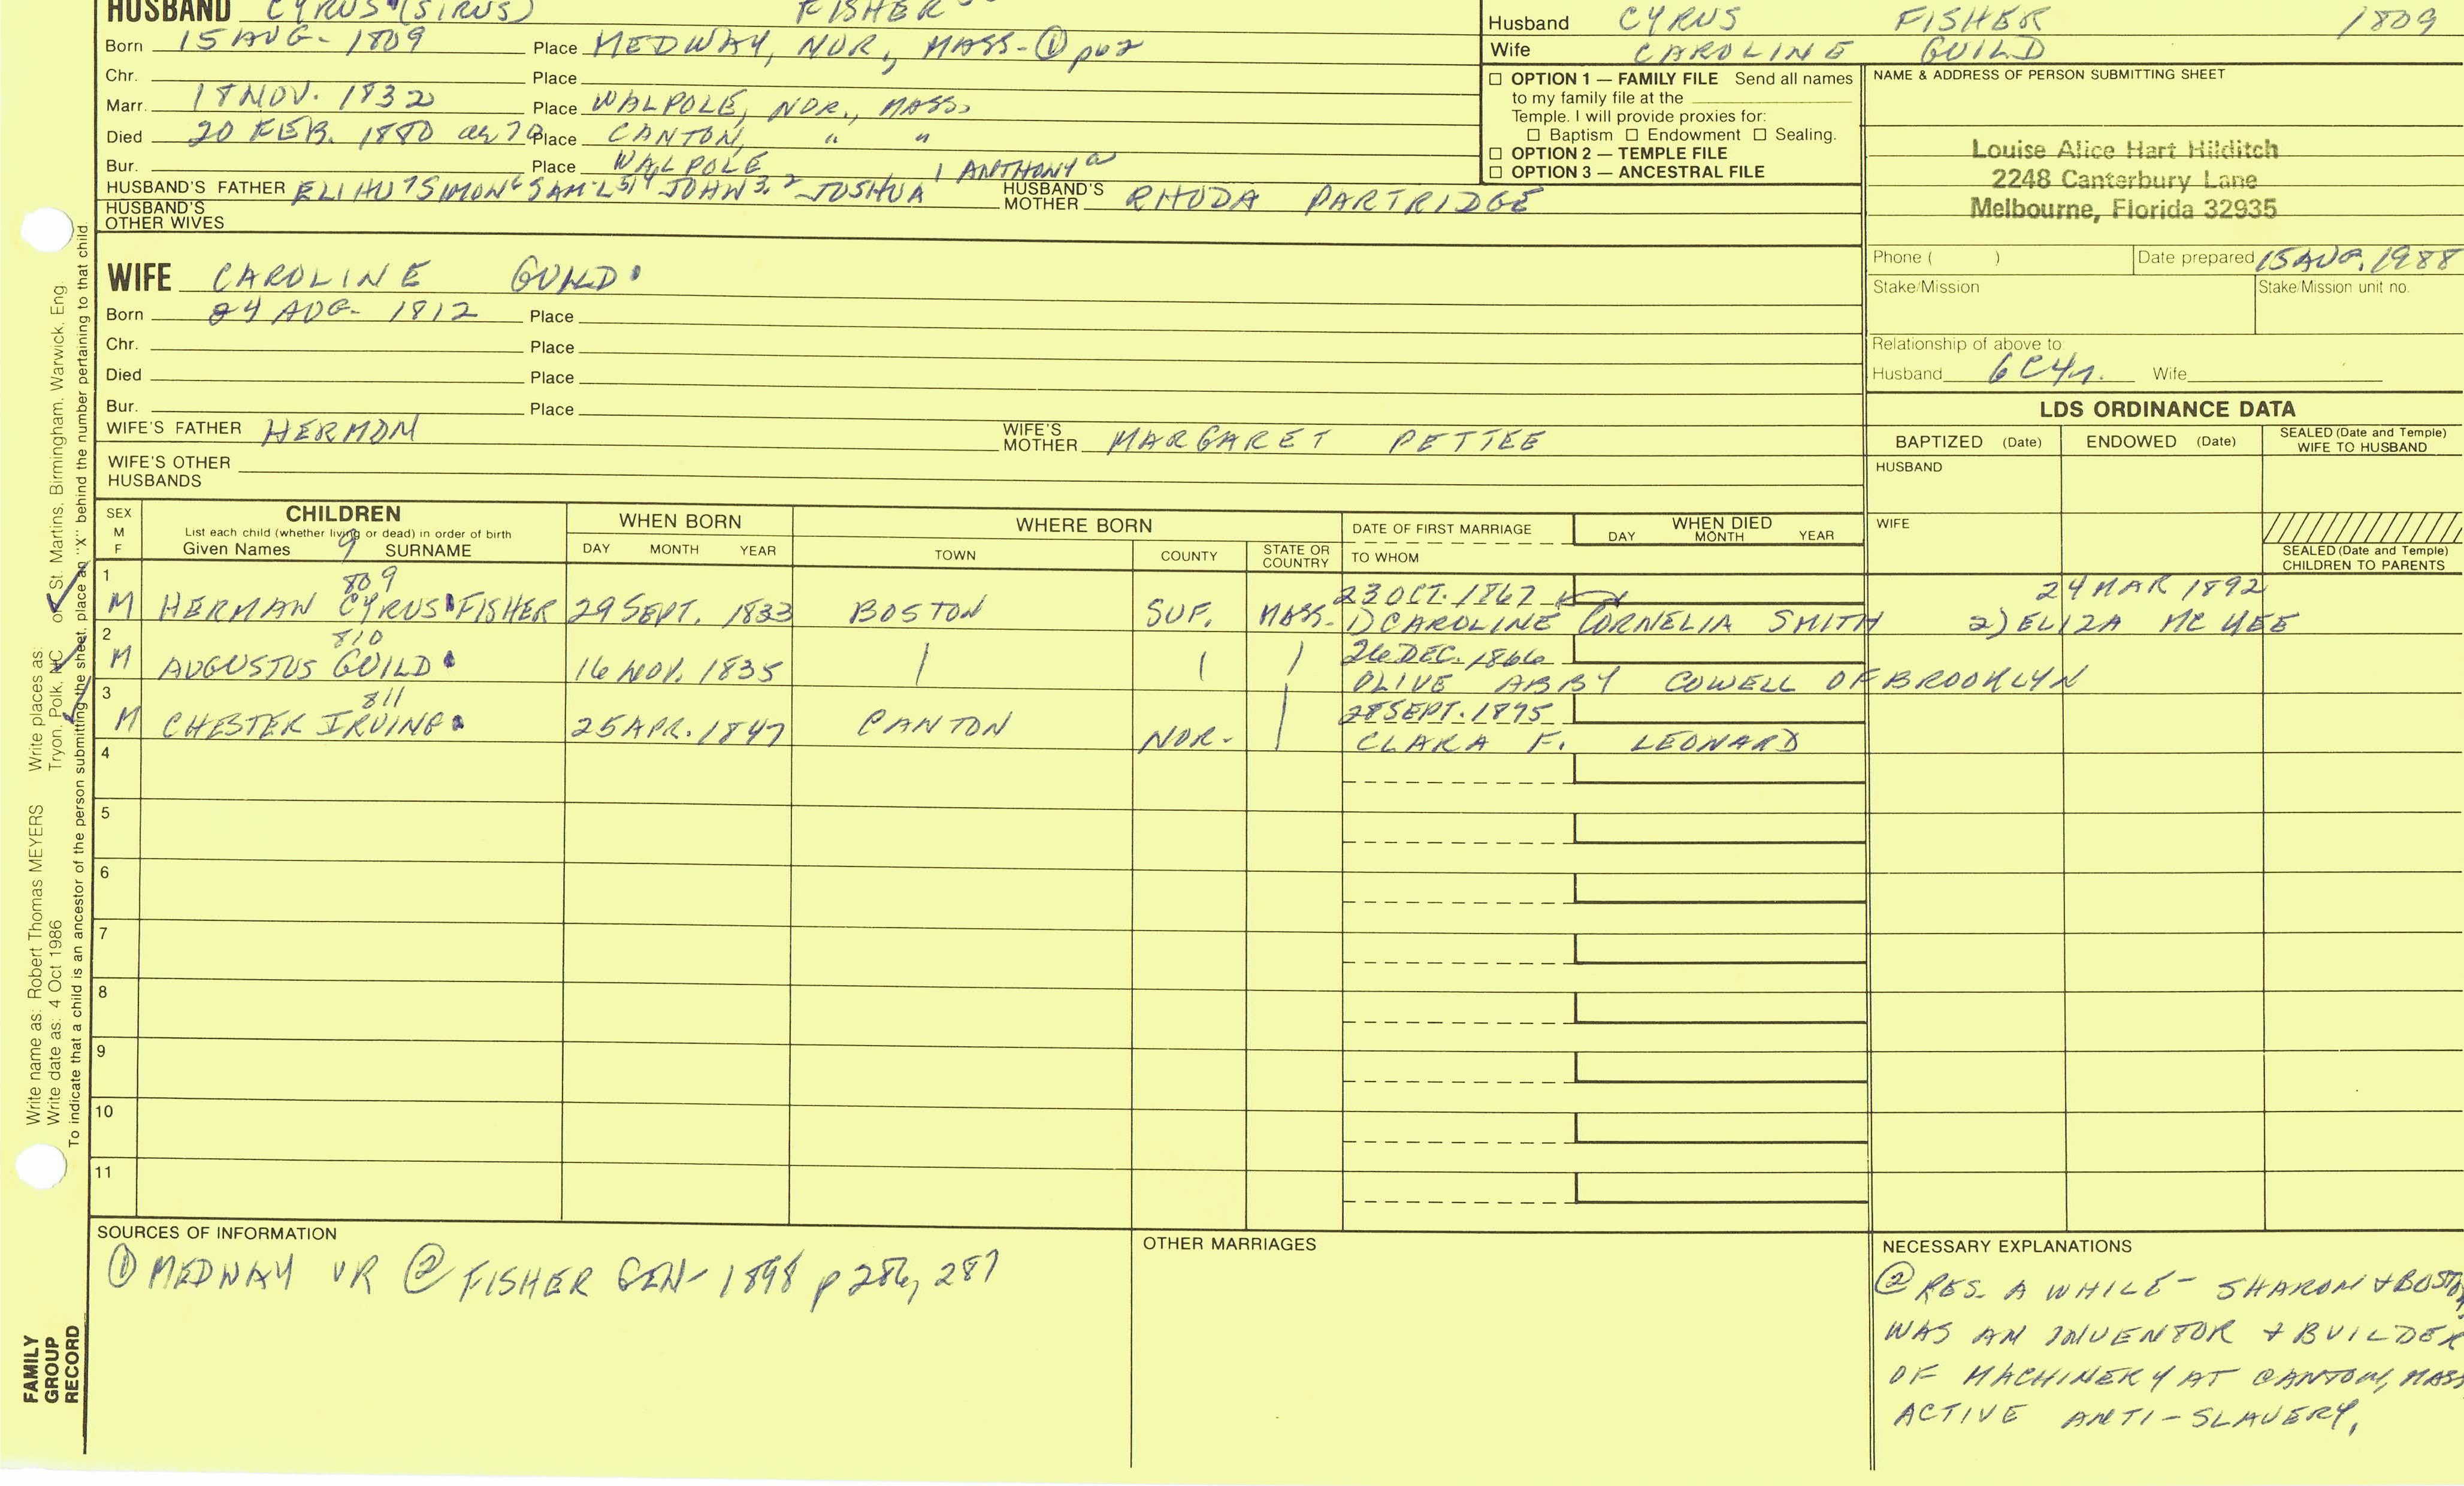 HUSBAND CYRUS (SIRUS) FISHER
Born 15 AUG. 1809 Place MEDWAY, NOR., MASS- ① p62
Chr. Place
Marr. 18 NOV. 1832 Place WALPOLE, NOR., MASS.
Died 20 FEB. 1880 ae 70 Place CANTON, " "
Bur. Place WALPOLE
HUSBAND'S FATHER ELIHU 7 SIMON 6 SAM'L 5,4 JOHN 3, 2 JOSHUA 1 ANTHONY HUSBAND'S MOTHER RHODA PARTRIDGE
HUSBAND'S OTHER WIVES
WIFE CAROLINE GUILD
Born 24 AUG. 1812 Place
Chr. Place
Died Place
Bur. Place
WIFE'S FATHER HERMON WIFE'S MOTHER MARGARET PETTEE
WIFE'S OTHER HUSBANDS
Husband CYRUS FISHER 1809
Wife CAROLINE GUILD
☐ OPTION 1 — FAMILY FILE Send all names
to my family file at the
Temple. I will provide proxies for:
☐ Baptism ☐ Endowment ☐ Sealing.
☐ OPTION 2 — TEMPLE FILE
☐ OPTION 3 — ANCESTRAL FILE
NAME & ADDRESS OF PERSON SUBMITTING SHEET
Louise Alice Hart Hilditch
2248 Canterbury Lane
Melbourne, Florida 32935
Phone ( ) Date prepared 15 AUG. 1988
Stake/Mission Stake/Mission unit no.
Relationship of above to:
Husband 6C4r. Wife
LDS ORDINANCE DATA
BAPTIZED (Date) ENDOWED (Date) SEALED (Date and Temple) WIFE TO HUSBAND
HUSBAND
WIFE
SEALED (Date and Temple) CHILDREN TO PARENTS
SEX M F CHILDREN WHEN BORN WHERE BORN DATE OF FIRST MARRIAGE WHEN DIED
List each child (whether living or dead) in order of birth
Given Names 9 SURNAME DAY MONTH YEAR TOWN COUNTY STATE OR COUNTRY TO WHOM DAY MONTH YEAR
1 809 23 OCT. 1867 24 MAR 1892
M HERMAN CYRUS FISHER 29 SEPT. 1833 BOSTON SUF. MASS. 1) CAROLINE CORNELIA SMITH 2) ELIZA MC
2 810 26 DEC. 1866
M AUGUSTUS GUILD 16 NOV. 1835 OLIVE ABBY COWELL OF BROOKLYN
3 811 28 SEPT. 1875
M CHESTER IRVING 25 APR. 1847 CANTON NOR. CLARA F. LEONARD
4
5
6
7
8
9
10
11
SOURCES OF INFORMATION
① MEDWAY VR ② FISHER GEN- 1898 p 286, 287
OTHER MARRIAGES
NECESSARY EXPLANATIONS
② RES. A WHILE - SHARON + BOSTON
WAS AN INVENTOR + BUILDER
OF MACHINERY AT CANTON, MASS
ACTIVE ANTI-SLAVERY.
Write name as: Robert Thomas MEYERS Write places as:
Write date as: 4 Oct 1986 Tryon, Polk, NC or St. Martins, Birmingham, Warwick, Eng.
To indicate that a child is an ancestor of the person submitting the sheet, place an "X" behind the number pertaining to that child.
FAMILY
GROUP
RECORD